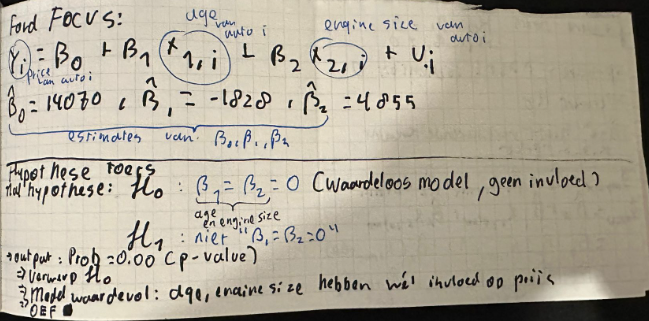 Ford Focus:
age van auto i
engine size van auto i
Yi = β0 + β1 X1,i + β2 X2,i + U.i
price van auto i
β̂0 = 14070, β̂1 = -1828, β̂2 = 4855
estimates van β0, β1, β2
Hypothese toets
Nulhypothese: H0 : β1 = β2 = 0 (waardeloos model, geen invloed)
age en engine size
H1 : niet "β1 = β2 = 0"
→ output: Prob = 0.00 (p-value)
⇒ Verwerp H0
⇒ Model waardevol: age, engine size hebben wél invloed op prijs
OEF